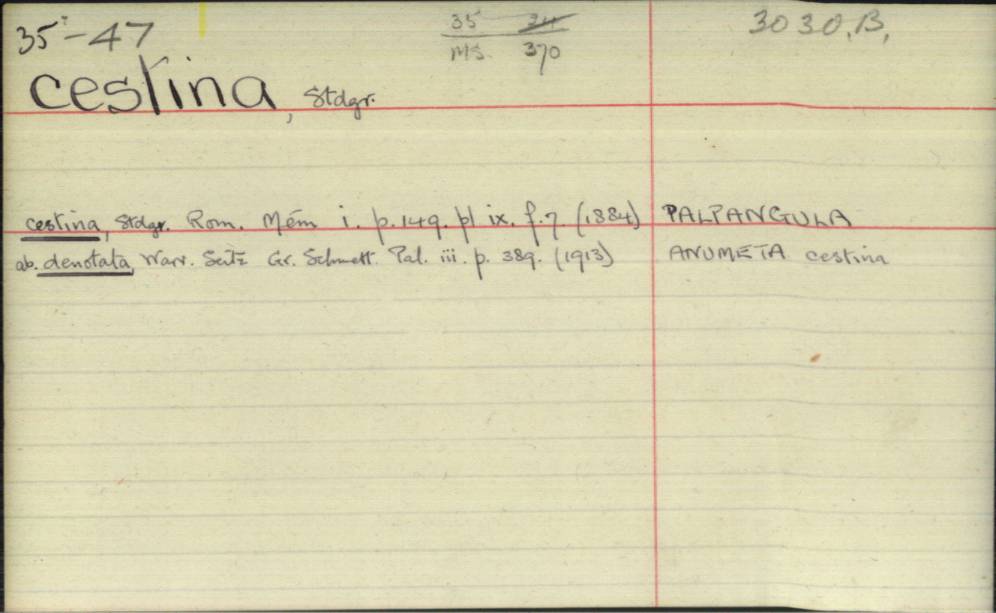 35-47
35 34
MS. 370
3030.B.
cestina, Stdgr.
cestina, Stdgr. Rom. Mém i. p. 149. pl ix. f. 7. (1884) PALPANGULA
ab. denotata Warr. Seitz Gr. Schmett. Pal. iii. p. 389. (1913) ANUMETA cestina